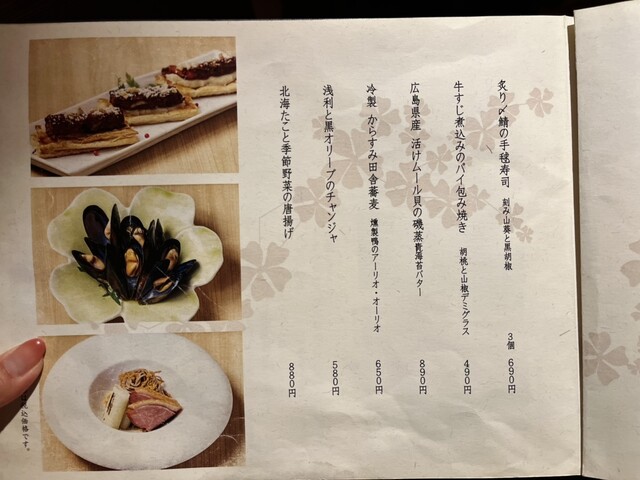 炙り〆鯖の手毬寿司 刻み山葵と黒胡椒 3個 690円
牛すじ煮込みのパイ包み焼き 胡桃と山椒デミグラス 490円
広島県産 活けムール貝の磯蒸 青海苔バター 890円
冷製 からすみ田舎蕎麦 燻製鴨のアーリオ・オーリオ 650円
浅利と黒オリーブのチャンジャ 580円
北海たこと季節野菜の唐揚げ 880円
込価格です。